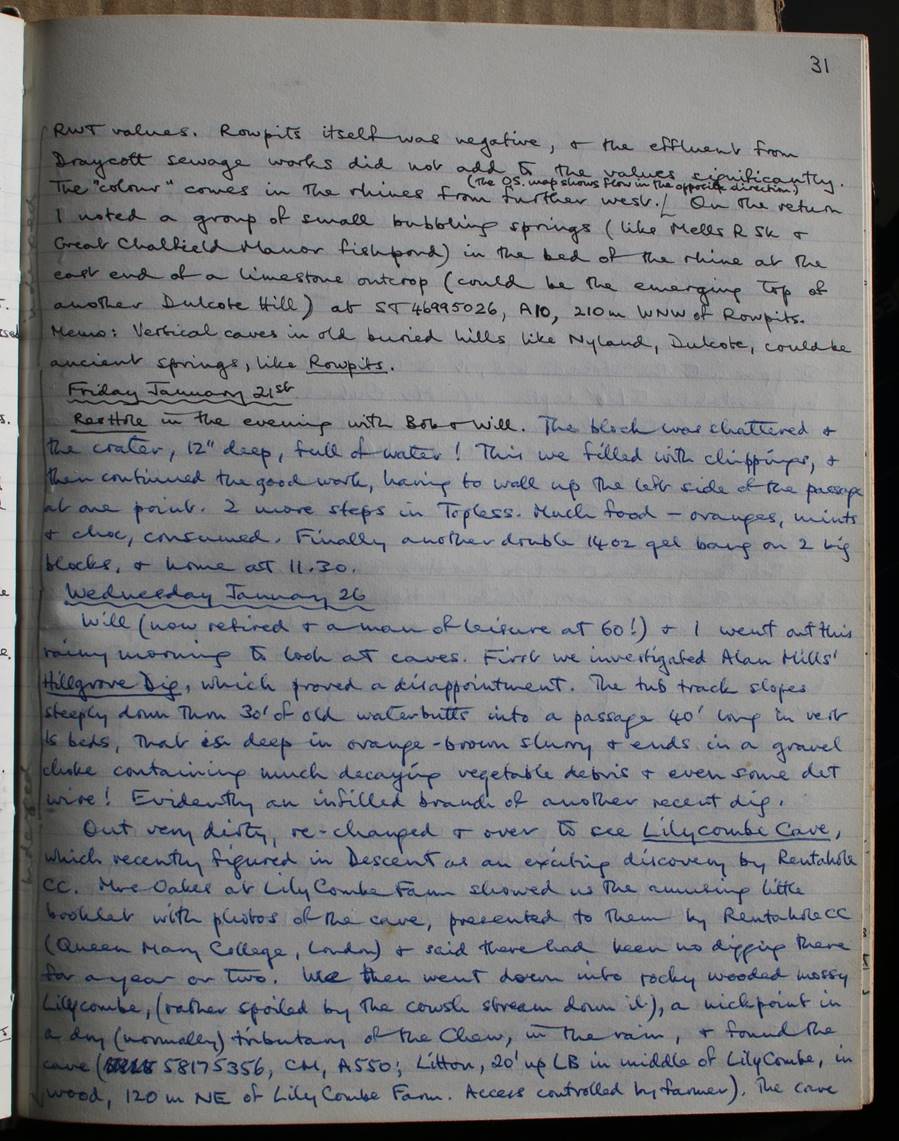 31
RWT values. Rowpits itself was negative, & the effluent from
Draycott sewage works did not add to the values significantly.
(The OS. map shows flow in the opposite direction)
The "colour" comes in the rhines from further west./ On the return
I noted a group of small bubbling springs (like Mells R Sk &
Great Chalfield Manor fishpond) in the bed of the rhine at the
east end of a limestone outcrop (could be the emerging top of
another Dulcote Hill) at ST 46995026, A10, 210m WNW of Rowpits.
Memo: Vertical caves in old buried hills like Nyland, Dulcote, could be
ancient springs, like Rowpits.
Friday January 21st
Res Hole in the evening with Bob & Will. The block was shattered &
the crater, 12" deep, full of water! This we filled with chippings, &
then continued the good work, having to wall up the left side of the passage
at one point. 2 more steps in Topless. Much food - oranges, mints
& choc, consumed. Finally another double 14oz gel bang on 2 big
blocks, & home at 11.30.
Wednesday January 26
Will (now retired & a man of leisure at 60!) & I went out this
rainy morning to look at caves. First we investigated Alan Mills'
Hillgrove Dig, which proved a disappointment. The tub track slopes
steeply down thro 30' of old waterbutts into a passage 40' long in vert
ls beds, that is deep in orange-brown slurry & ends in a gravel
choke containing much decaying vegetable debris & even some det
wire! Evidently an infilled branch of another recent dig.
Out very dirty, re-changed & over to see Lilycombe Cave,
which recently figured in Descent as an exciting discovery by Rentahole
CC. Mrs Oakes at Lily Combe Farm showed us the amusing little
booklet with photos of the cave, presented to them by Rentahole CC
(Queen Mary College, London) & said there had been no digging there
for a year or two. We then went down into rocky wooded mossy
Lilycombe, (rather spoiled by the cowsh stream down it), a nickpoint in
a dry (normally) tributary of the Chew, in the rain, & found the
cave ( 58175356, CM, A550; Litton, 20' up LB in middle of LilyCombe, in
wood, 120m NE of Lily Combe Farm. Access controlled by farmer). The cave